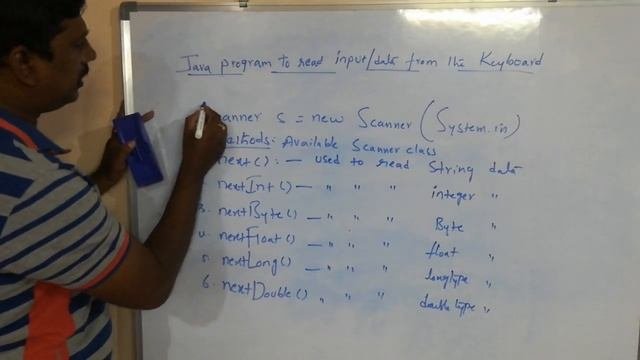 Java program to read input/data from the Keyboard
canner s = new Scanner (System.in)
ethods: Available Scanner class
next() : — used to read String data
nextInt() — " " " integer "
3. nextByte() — " " " Byte "
4. nextFloat() — " " " float "
5. nextLong() — " " " longtype "
6. nextDouble() " " " doubletype "